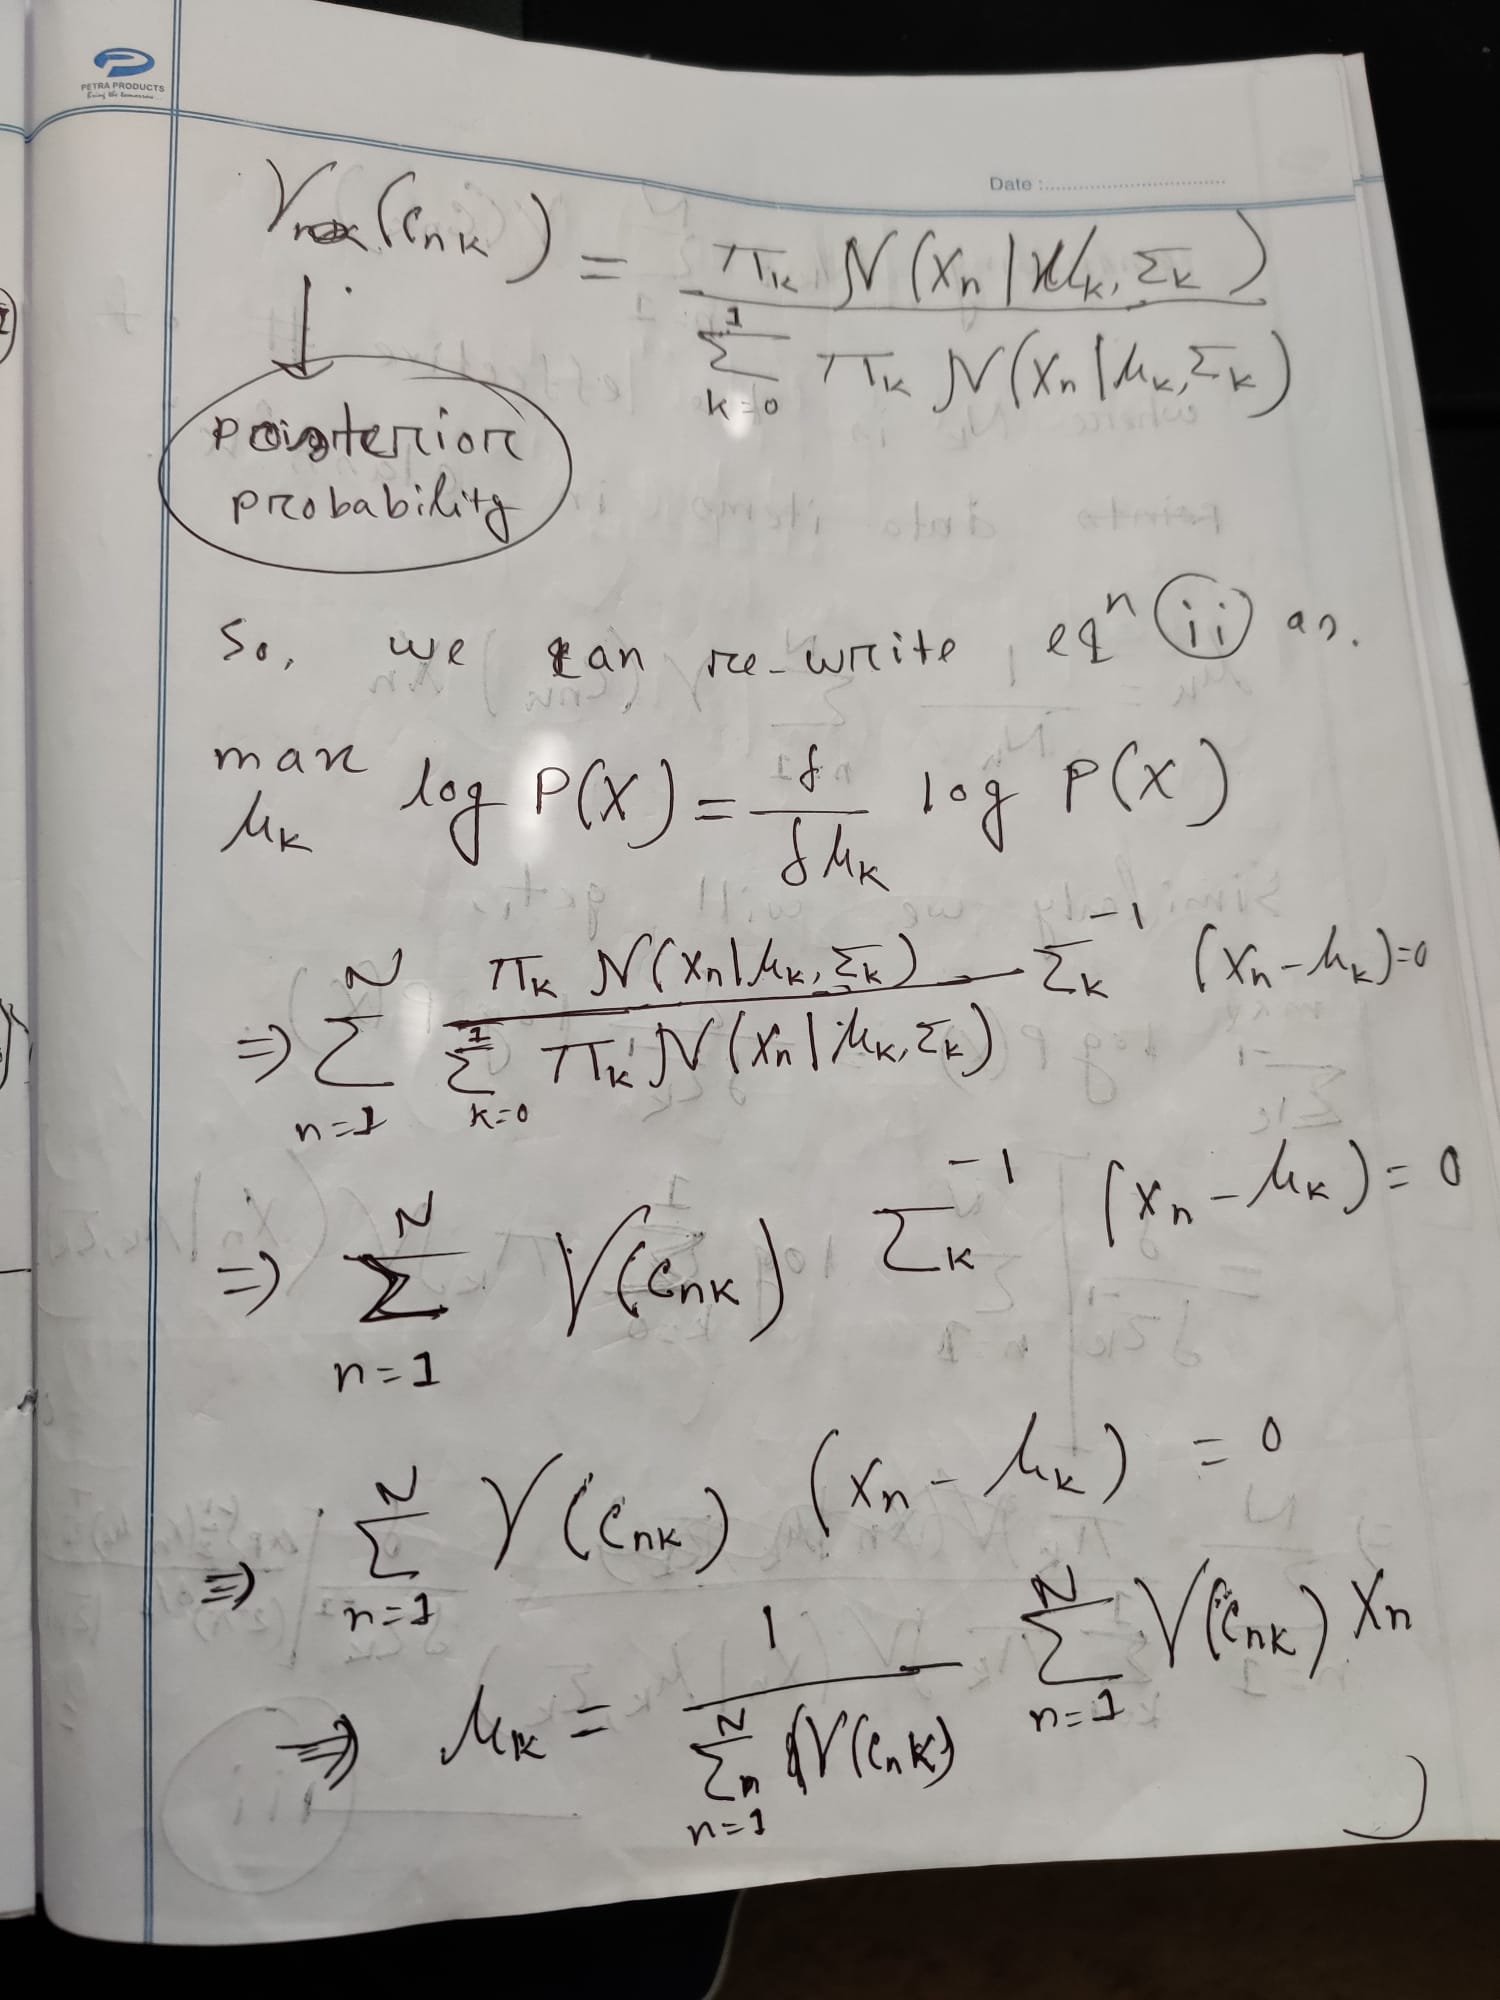 PETRA PRODUCTS
Bring the tomorrow...
Date :
γ(Cnk) = πk N(Xn | μk, Σk) / Σ_{k=0}^{1} πk N(Xn | μk, Σk)
posterior
probability
So, we can re-write eqⁿ (ii) as.
max_{μk} log P(X) = δ/δμk log P(X)
⇒ Σ_{n=1}^{N} πk N(Xn | μk, Σk) / Σ_{k=0}^{1} πk N(Xn | μk, Σk) Σk^{-1} (Xn - μk) = 0
⇒ Σ_{n=1}^{N} γ(Cnk) Σk^{-1} (Xn - μk) = 0
⇒ Σ_{n=1}^{N} γ(Cnk) (Xn - μk) = 0
⇒ μk = 1 / Σ_{n=1}^{N} γ(Cnk) Σ_{n=1}^{N} γ(Cnk) Xn